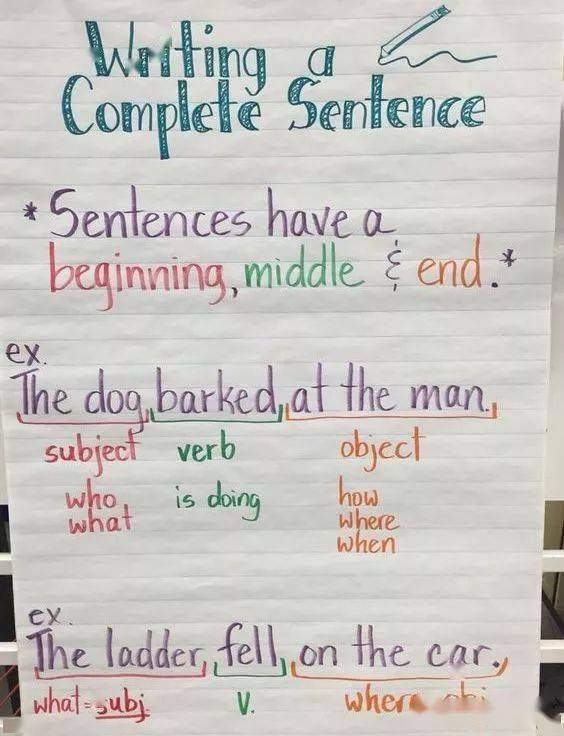 Writing a
Complete Sentence
*Sentences have a
beginning, middle & end.*
ex.
The dog barked at the man.
subject verb object
who is doing how
what where
when
ex.
The ladder fell on the car.
what=subj. v. where